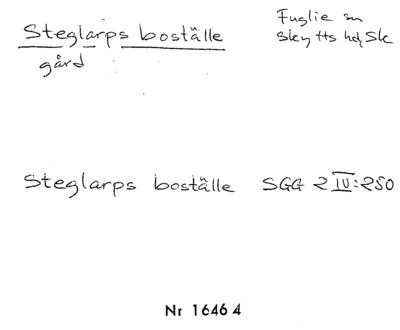 Steglarps boställe
gård
Fuglie sn
Skytts hd, Sk
Steglarps boställe SGG 2 IV:250
Nr 16464